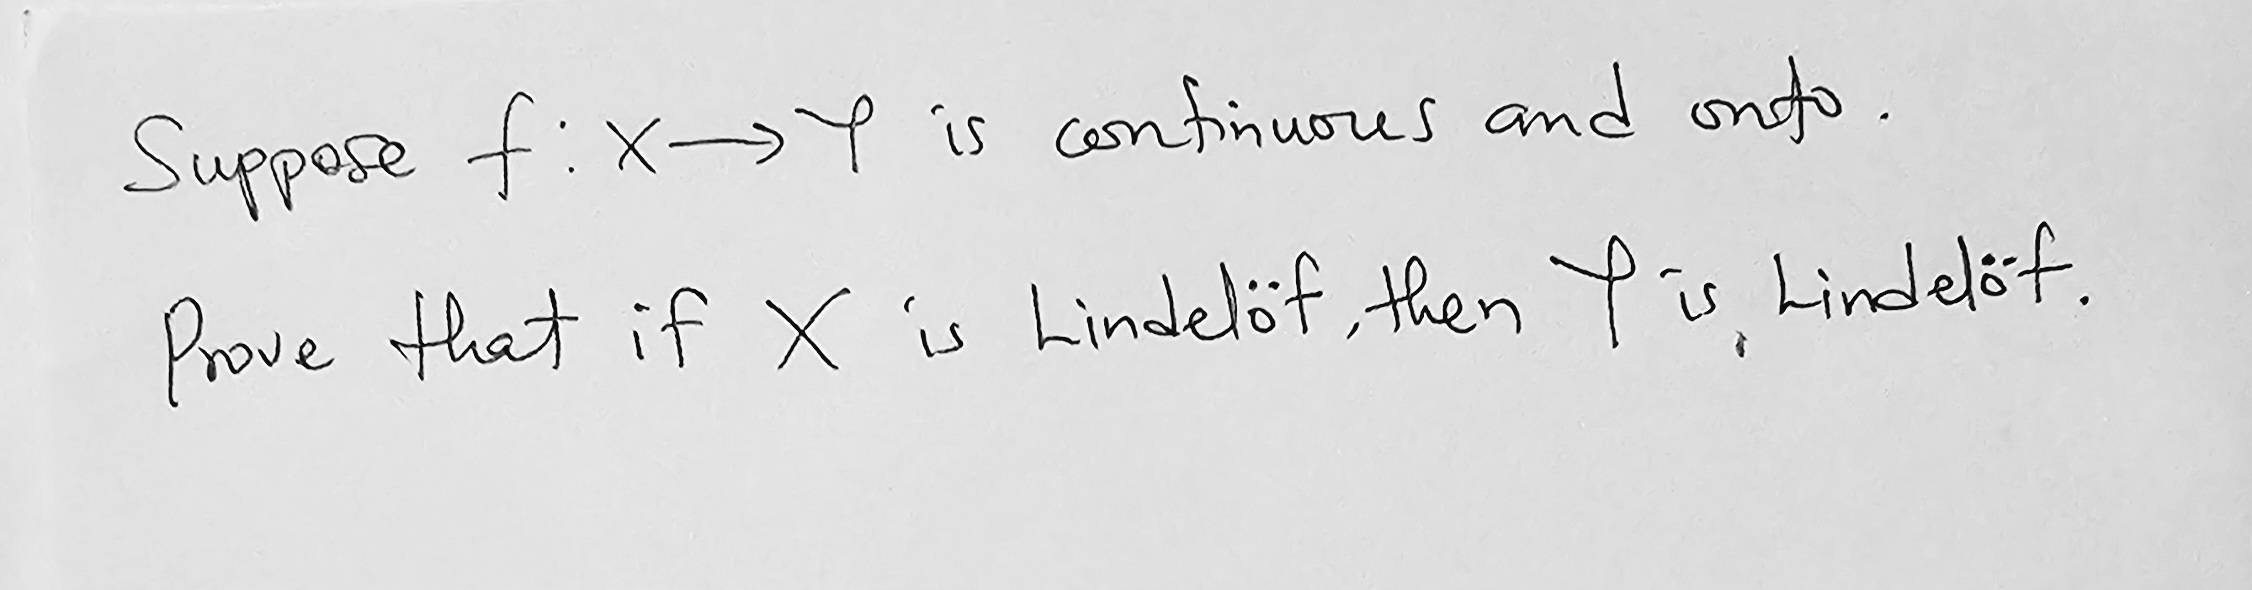 Suppose f: X → Y is continuous and onto.
Prove that if X is Lindelöf, then Y is Lindelöf.